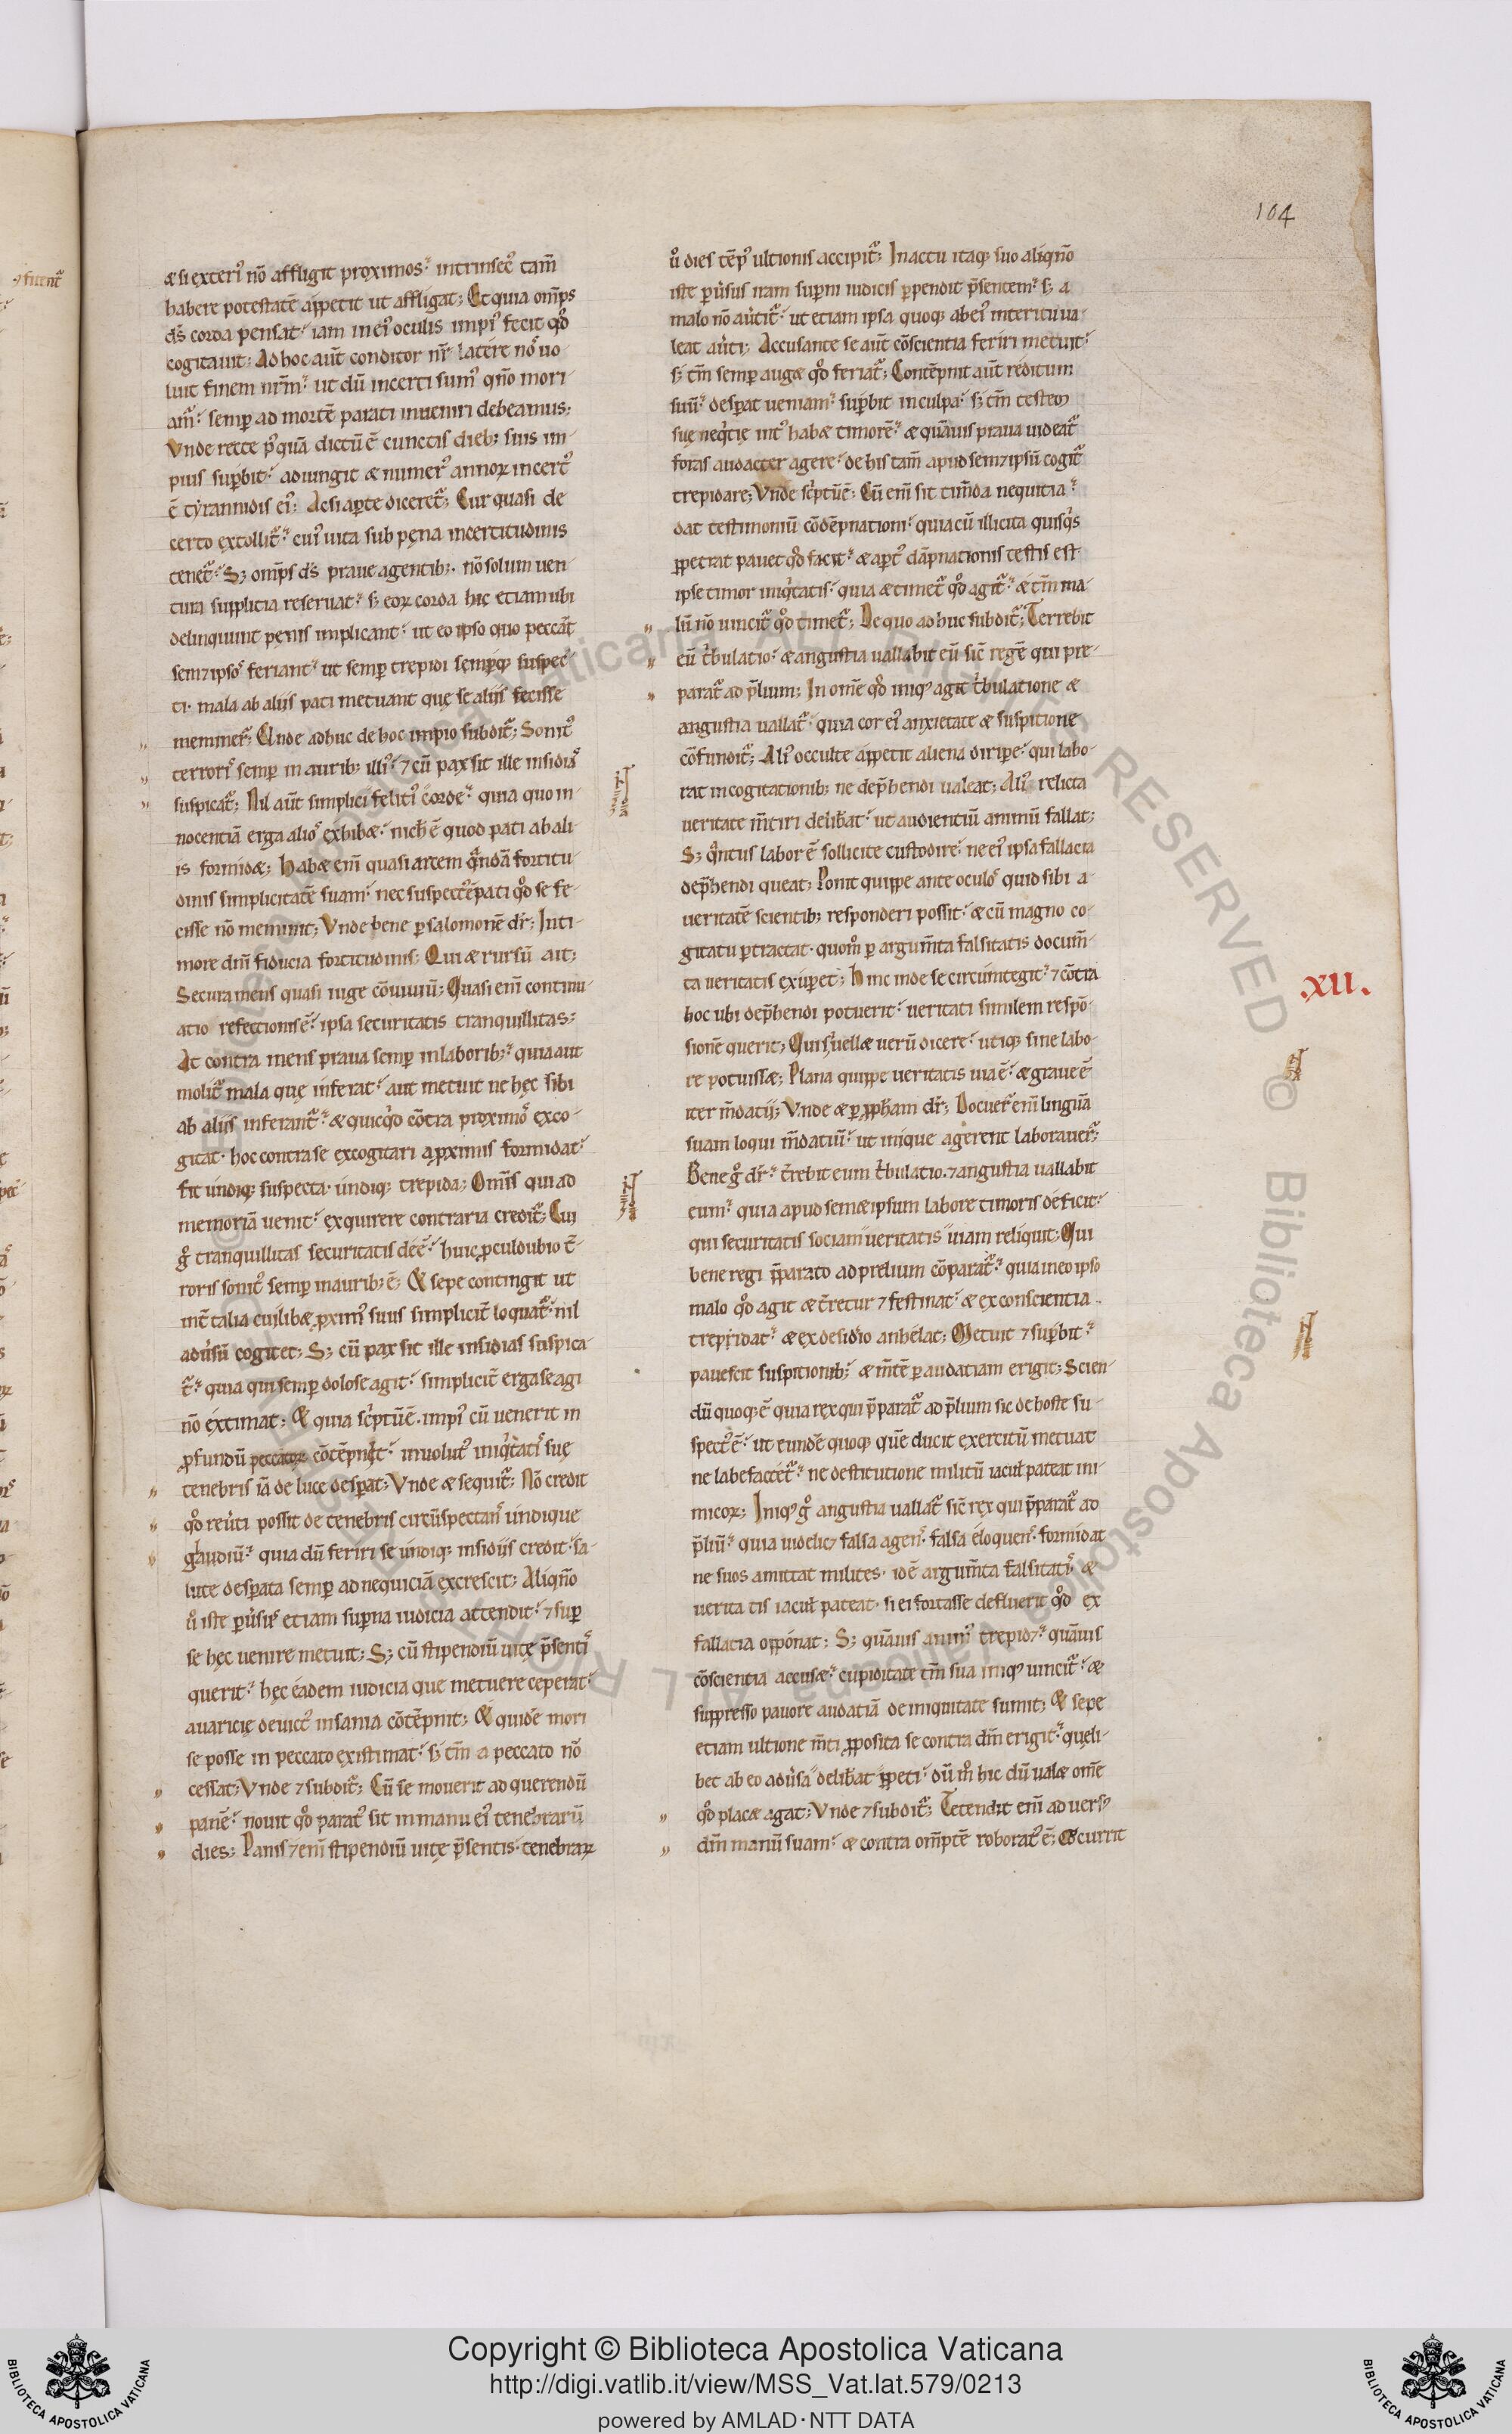 104
& si exteri' nō affligit proximos. intrinsec' tam̄
habere potestatē appetit ut affligat; Et quia om̄ps
d̄s corda pensat. iam in ei' oculis impi' fecit qđ
cogitauit; Ad hoc aūt conditor nr̄ latere nob' uo-
luit finem nr̄m. ut dū incerti sum' qn̄o mori-
am̄r. semp ad mortē parati inueniri debeamus;
Vnde recte p'quā dictū ē cunctis dieb; suis im-
pius supbit. adiungit & numer' annoꝝ incert'
ē tyrannidis ei'; Ac si apte diceret̄; Cur quasi de
certo extollit̄. cui' uita sub pęna incertitudinis
tenet̄. S; om̄ps d̄s praue agentib;. nō solum uen-
tura supplicia reseruat. s; eoꝝ corda hic etiam ubi
delinquunt pęnis implicant. ut eo ipso quo peccāt
sem⁊ipsos feriant. ut semp trepidi sempq; suspec-
ti. mala ab aliis pati metuant que se aliis fecisse
meminer̄; Vnde adhuc de hoc impio subdit̄; Sonit'
terroris semp in aurib; illi'. ⁊ cū pax sit ille insidias
suspicat̄; Nil aūt simplici felici' corde. quia quo in-
nocentiā erga alios exhib&. nich ē quod pati ab ali-
is formid&; Hab& eni quasi arcem q̄ndā fortitu-
dinis simplicitatē suam. nec suspect' ē pati qđ se fe-
cisse nō meminit; Vnde bene p salomonē dr̄; Inti-
more dn̄i fiducia fortitudinis; Qui & rursū ait;
Secura mens quasi iuge cōuiuiū; Quasi eni continu-
atio refectionis ē. ipsa securitatis tranquillitas;
At contra mens praua semp in laborib;. quia aut
molit̄ mala quę inferat. aut metuit ne hęc sibi
ab aliis inferant̄. & quicq'd cōtra proximos exco-
gitat. hoc contra se excogitari a pximis formidat.
fit undiq; suspecta. undiq; trepida; Om̄is qui ad
memoriā uenit. exquirere contraria credit̄; Cui
g° tranquillitas securitatis deē. huic pculdubio t̄-
roris sonit' semp in aurib; ē; Et sepe contingit ut
int̄ talia cuilib& pxim' suus simplicit̄ loquat̄. nil
adu'sū cogitet; S; cū pax sit ille insidias suspica-
t̄. quia qui semp dolose agit. simplicit̄ erga se agi
nō extimat; Et quia sc'ptū ē. impi' cū uenerit in
pfundū peccatoꝝ cōtēpnit. inuolut' iniq'tatis suę
tenebris iā de luce desperat; Vnde & sequit̄; Nō credit
qđ reu'ti possit de tenebris circūspectans undique
glaudiū. quia dū feriri se undiq; insidiis credit. sa-
lute desperata semp ad nequiciā excrescit; Aliqn̄o
u° iste pu'sus etiam supna iudicia attendit. ⁊ sup
se hęc uenire metuit; S; cū stipendiū uitę p̄sentis
querit. hęc eadem iudicia que metuere ceperat.
auaricię deuict' insania cōtēpnit; Et quidē mori
se posse in peccato existimat. s; tm̄ a peccato nō
cessat; Vnde ⁊ subdit̄; Cū se mouerit ad querendū
panē. nouit qđ parat' sit in manu ei' tenebrarū
dies; Panis ⁊eni stipendiū uitę p̄sentis. tenebraꝝ
u° dies tēp' ultionis accipit̄; In actu itaq; suo aliqn̄o
iste pu'sus iram supni iudicis ppendit p̄sentem. s; a
malo nō au'tit̄. ut etiam ipsa quoq; ab ei' interitu ua-
leat au'ti; Accusante se aūt cōscientia feriri metuit.
s; tm̄ semp auget qđ feriat̄; Contēpnit aūt reditum
suū. desperat ueniam. supbit in culpa. s; tm̄ testem
suę neq'tię int' hab& timorē. & quāuis praua uideat̄
foras audacter agere. de his tam̄ apud sem⁊ipsū cogit̄
trepidare; Vnde sc'ptū ē; Cū eni sit timida nequitia.
dat testimoniū cōdēpnationi. quia cū illicita quisq's
ppetrat pauet qđ facit. & apt' dāpnationis testis est
ipse timor iniq'tatis. quia & timet̄ qđ agit̄. & tm̄ ma-
lū nō uincit̄ qđ timet̄; De quo adhuc subdit̄; Terrebit
eū t'bulatio. & angustia uallabit eū sic̄ regē qui pre-
parat̄ ad p̄lium; In om̄e qđ iniq' agit t'bulatione &
angustia uallat̄. quia cor ei' anxietate & suspitione
cōfundit̄; Ali' occulte appetit aliena diripe. qui labo-
rat in cogitationib; ne dep̄hendi ualeat; Ali' relicta
ueritate m̄tiri delib'at. ut audientiū animū fallat;
S; q'ntus labor ē sollicite custodire. ne ei' ipsa fallacia
dep̄hendi queat; Ponit quippe ante oculos quid sibi a-
ueritatē scientib; responderi possit. & cū magno co-
gitatu ptractat. quom° p argum̄ta falsitatis docum̄-
ta ueritatis exupet; Hinc inde se circūintegit. ⁊ cōtra
hoc ubi dep̄hendi potuerit. ueritati similem respō-
sionē querit; Qui si uell& uerū dicere. utiq; sine labo-
re potuiss&; Plana quippe ueritatis uia ē. & graue ē
iter m̄datii; Vnde & p pph̄am dr̄; Docuer̄ eni linguā
suam loqui m̄datiū. ut inique agerent laborauer̄;
Bene g° dr̄. t̄rebit eum t'bulatio. ⁊ angustia uallabit
eum. quia apud sem&ipsum labore timoris deficit.
qui securitatis sociam ueritatis uiam reliquit; Qui
bene regi p̄parato ad prelium cōparat̄. quia in eo ipso
malo qđ agit & t̄retur ⁊ festinat. & ex conscientia
trepidat. & ex desid'io anhelat; Metuit ⁊ supbit.
pauescit suspitionib;. & m̄tē p audatiam erigit; Scien-
dū quoq; ē quia rex qui p̄parat̄ ad p̄lium sic de hoste su-
spect' ē. ut eundē quoq; quē ducit exercitū metuat
ne labefactet̄. ne destitutione militū iacul pateat ini-
micoꝝ; Iniq' g° angustia uallat̄ sic̄ rex qui p̄parat̄ ad
p̄liū. quia uidelic⁊ falsa agens. falsa eloquens. formidat
ne suos amittat milites. idē argum̄ta falsitatis. &
ueritatis iacul pateat. si ei fortasse defluerit qđ ex
fallacia opponat; S; quāuis anim' trepid⁊. quāuis
cōscientia accus&. cupiditate tm̄ sua iniq' uincit̄. &
suppresso pauore audatiā de iniquitate sumit; Et sepe
etiam ultione m̄ti pposita se contra dm̄ erigit. queli-
bet ab eo adu'sa delib'at ppeti. dū m° hic dū ual& om̄e
qđ plac& agat; Vnde ⁊ subdit̄; Tetendit eni aduers'
dm̄ manū suam. & contra om̄ptē roborat' ē; Cucurrit
.XII.
Copyright © Biblioteca Apostolica Vaticana
http://digi.vatlib.it/view/MSS_Vat.lat.579/0213
powered by AMLAD·NTT DATA
BIBLIOTECA APOSTOLICA VATICANA
BIBLIOTECA APOSTOLICA VATICANA